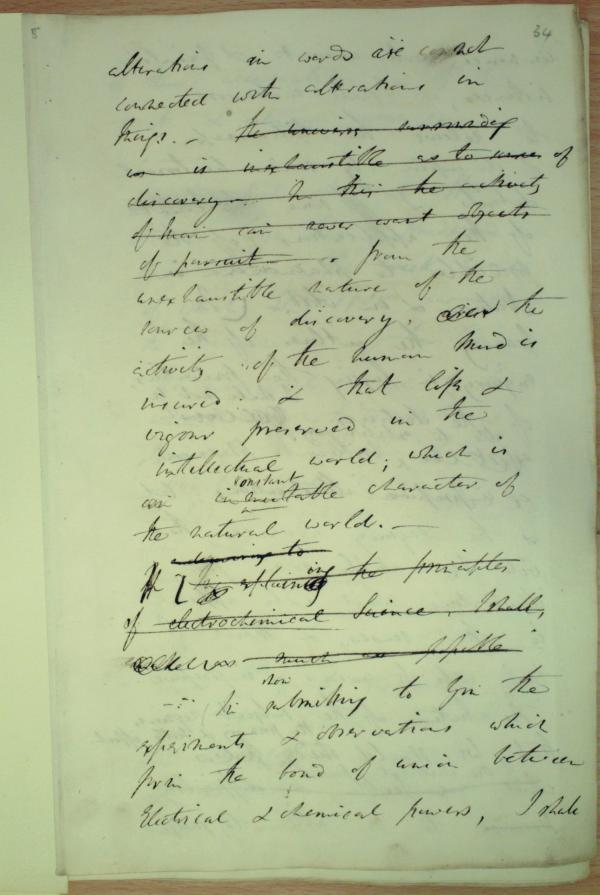 5 34
alterations in words are not
connected with alterations in
things. - the universe surrounding
us is inexhaustible as to sources of
discovery -. In this the activity
of Man can never want objects
of pursuit - . from the
unexhaustible nature of the
sources of discovery, the
activity of the human Mind is
insured. & that life &
vigour preserved in the
intellectual world; which is
constant
an character of
the natural world. -
to
explaining the principles
of electrochemical Science, I shall,
much as possible
now
In submitting to you the
experiments & observations which
form the bond of union between
Electrical & chemical powers, I shall